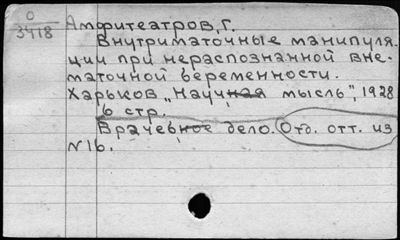 О
3418
Амфитеатров, Г.
Внутриматочные манипуля-
ции при нераспознанной вне-
маточной беременности.
Харьков „Научная мысль", 1928
6 стр.
Врачебное дело. Отд. отт. из
N16.